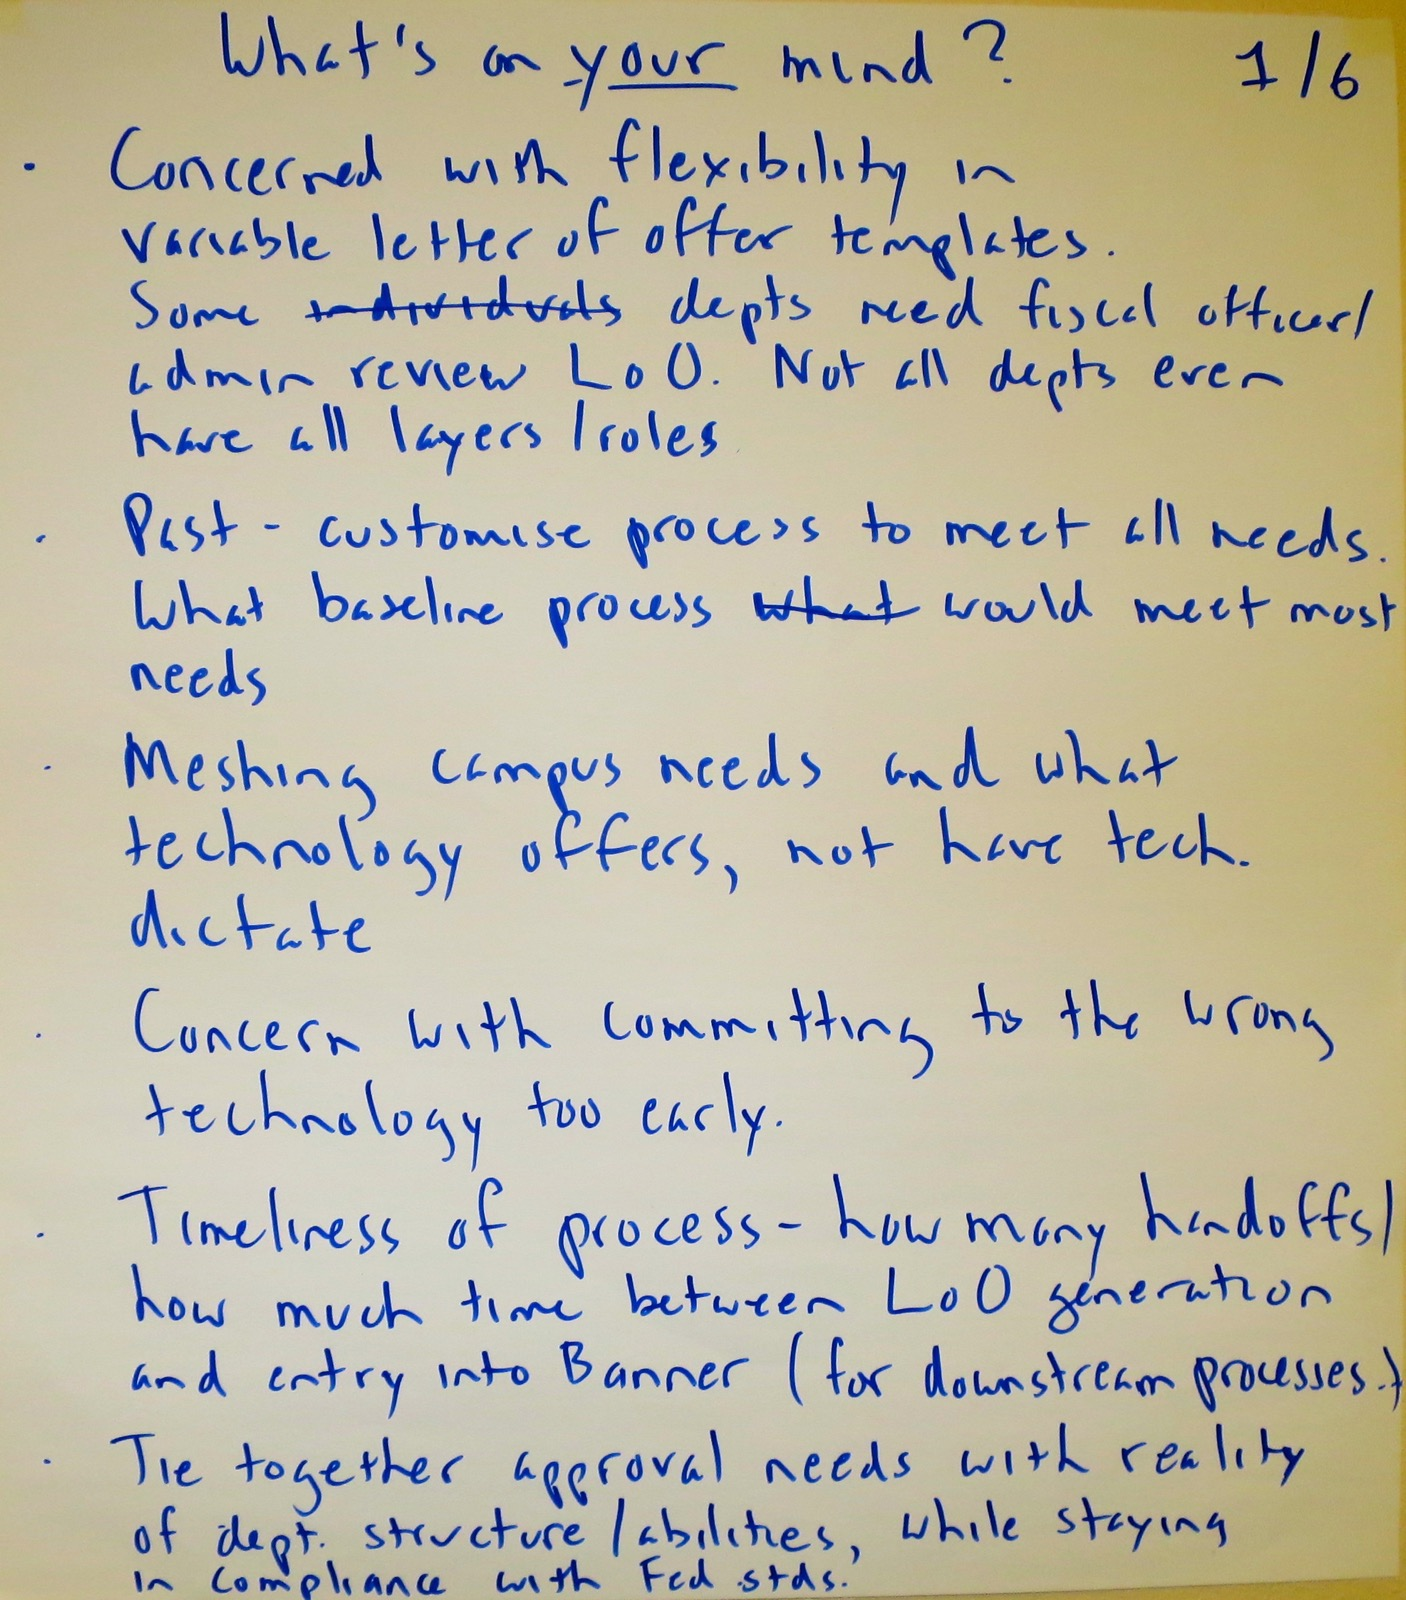 What's on your mind? 1/6
· Concerned with flexibility in
variable letter of offer templates.
Some individuals depts need fiscal officer/
admin review LoO. Not all depts even
have all layers/roles
· Past - customise process to meet all needs.
What baseline process what would meet most
needs
· Meshing campus needs and what
technology offers, not have tech.
dictate
· Concern with committing to the wrong
technology too early.
· Timeliness of process - how many handoffs/
how much time between LoO generation
and entry into Banner (for downstream processes.)
· Tie together approval needs with reality
of dept. structure/abilities, while staying
in compliance with Fed stds.